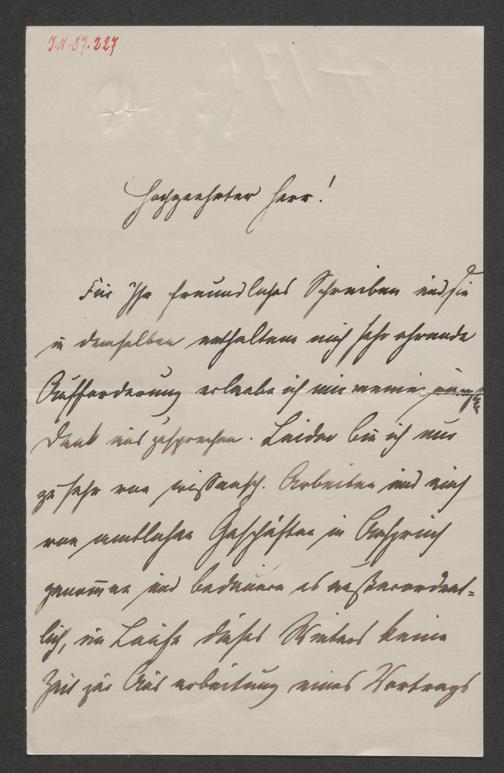 J.N. 87.227
Hochgeehrter Herr!
Für Ihr freundliches Schreiben und die
in demselben enthaltene mich sehr ehrende
Aufforderung erlaube ich mir meinen
Dank auszusprechen. Leider bin ich nur
zu sehr von wissensch. Arbeiten und auch
von amtlichen Geschäften in Anspruch
genommen und bedauere es außerordent-
lich, im Laufe dieses Winters keine
Zeit zur Ausarbeitung eines Vortrags